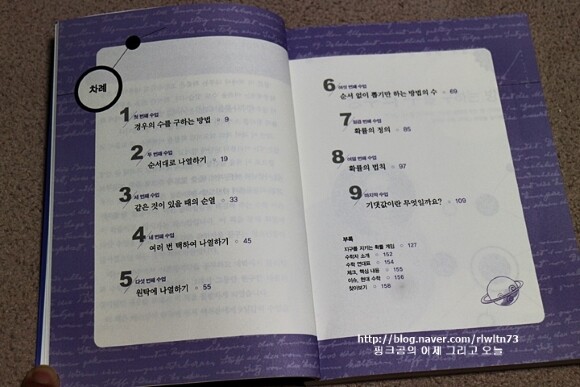 차례
1 첫 번째 수업
경우의 수를 구하는 방법 9
2 두 번째 수업
순서대로 나열하기 19
3 세 번째 수업
같은 것이 있을 때의 순열 33
4 네 번째 수업
여러 번 택하여 나열하기 45
5 다섯 번째 수업
원탁에 나열하기 55
6 여섯 번째 수업
순서 없이 뽑기만 하는 방법의 수 69
7 일곱 번째 수업
확률의 정의 85
8 여덟 번째 수업
확률의 법칙 97
9 마지막 수업
기댓값이란 무엇일까요? 109
부록
지구를 지키는 확률 게임 127
수학자 소개 152
수학 연대표 154
체크, 핵심 내용 155
이슈, 현대 수학 156
찾아보기 158
http://blog.naver.com/rlwltn73
핑크공의 어제 그리고 오늘